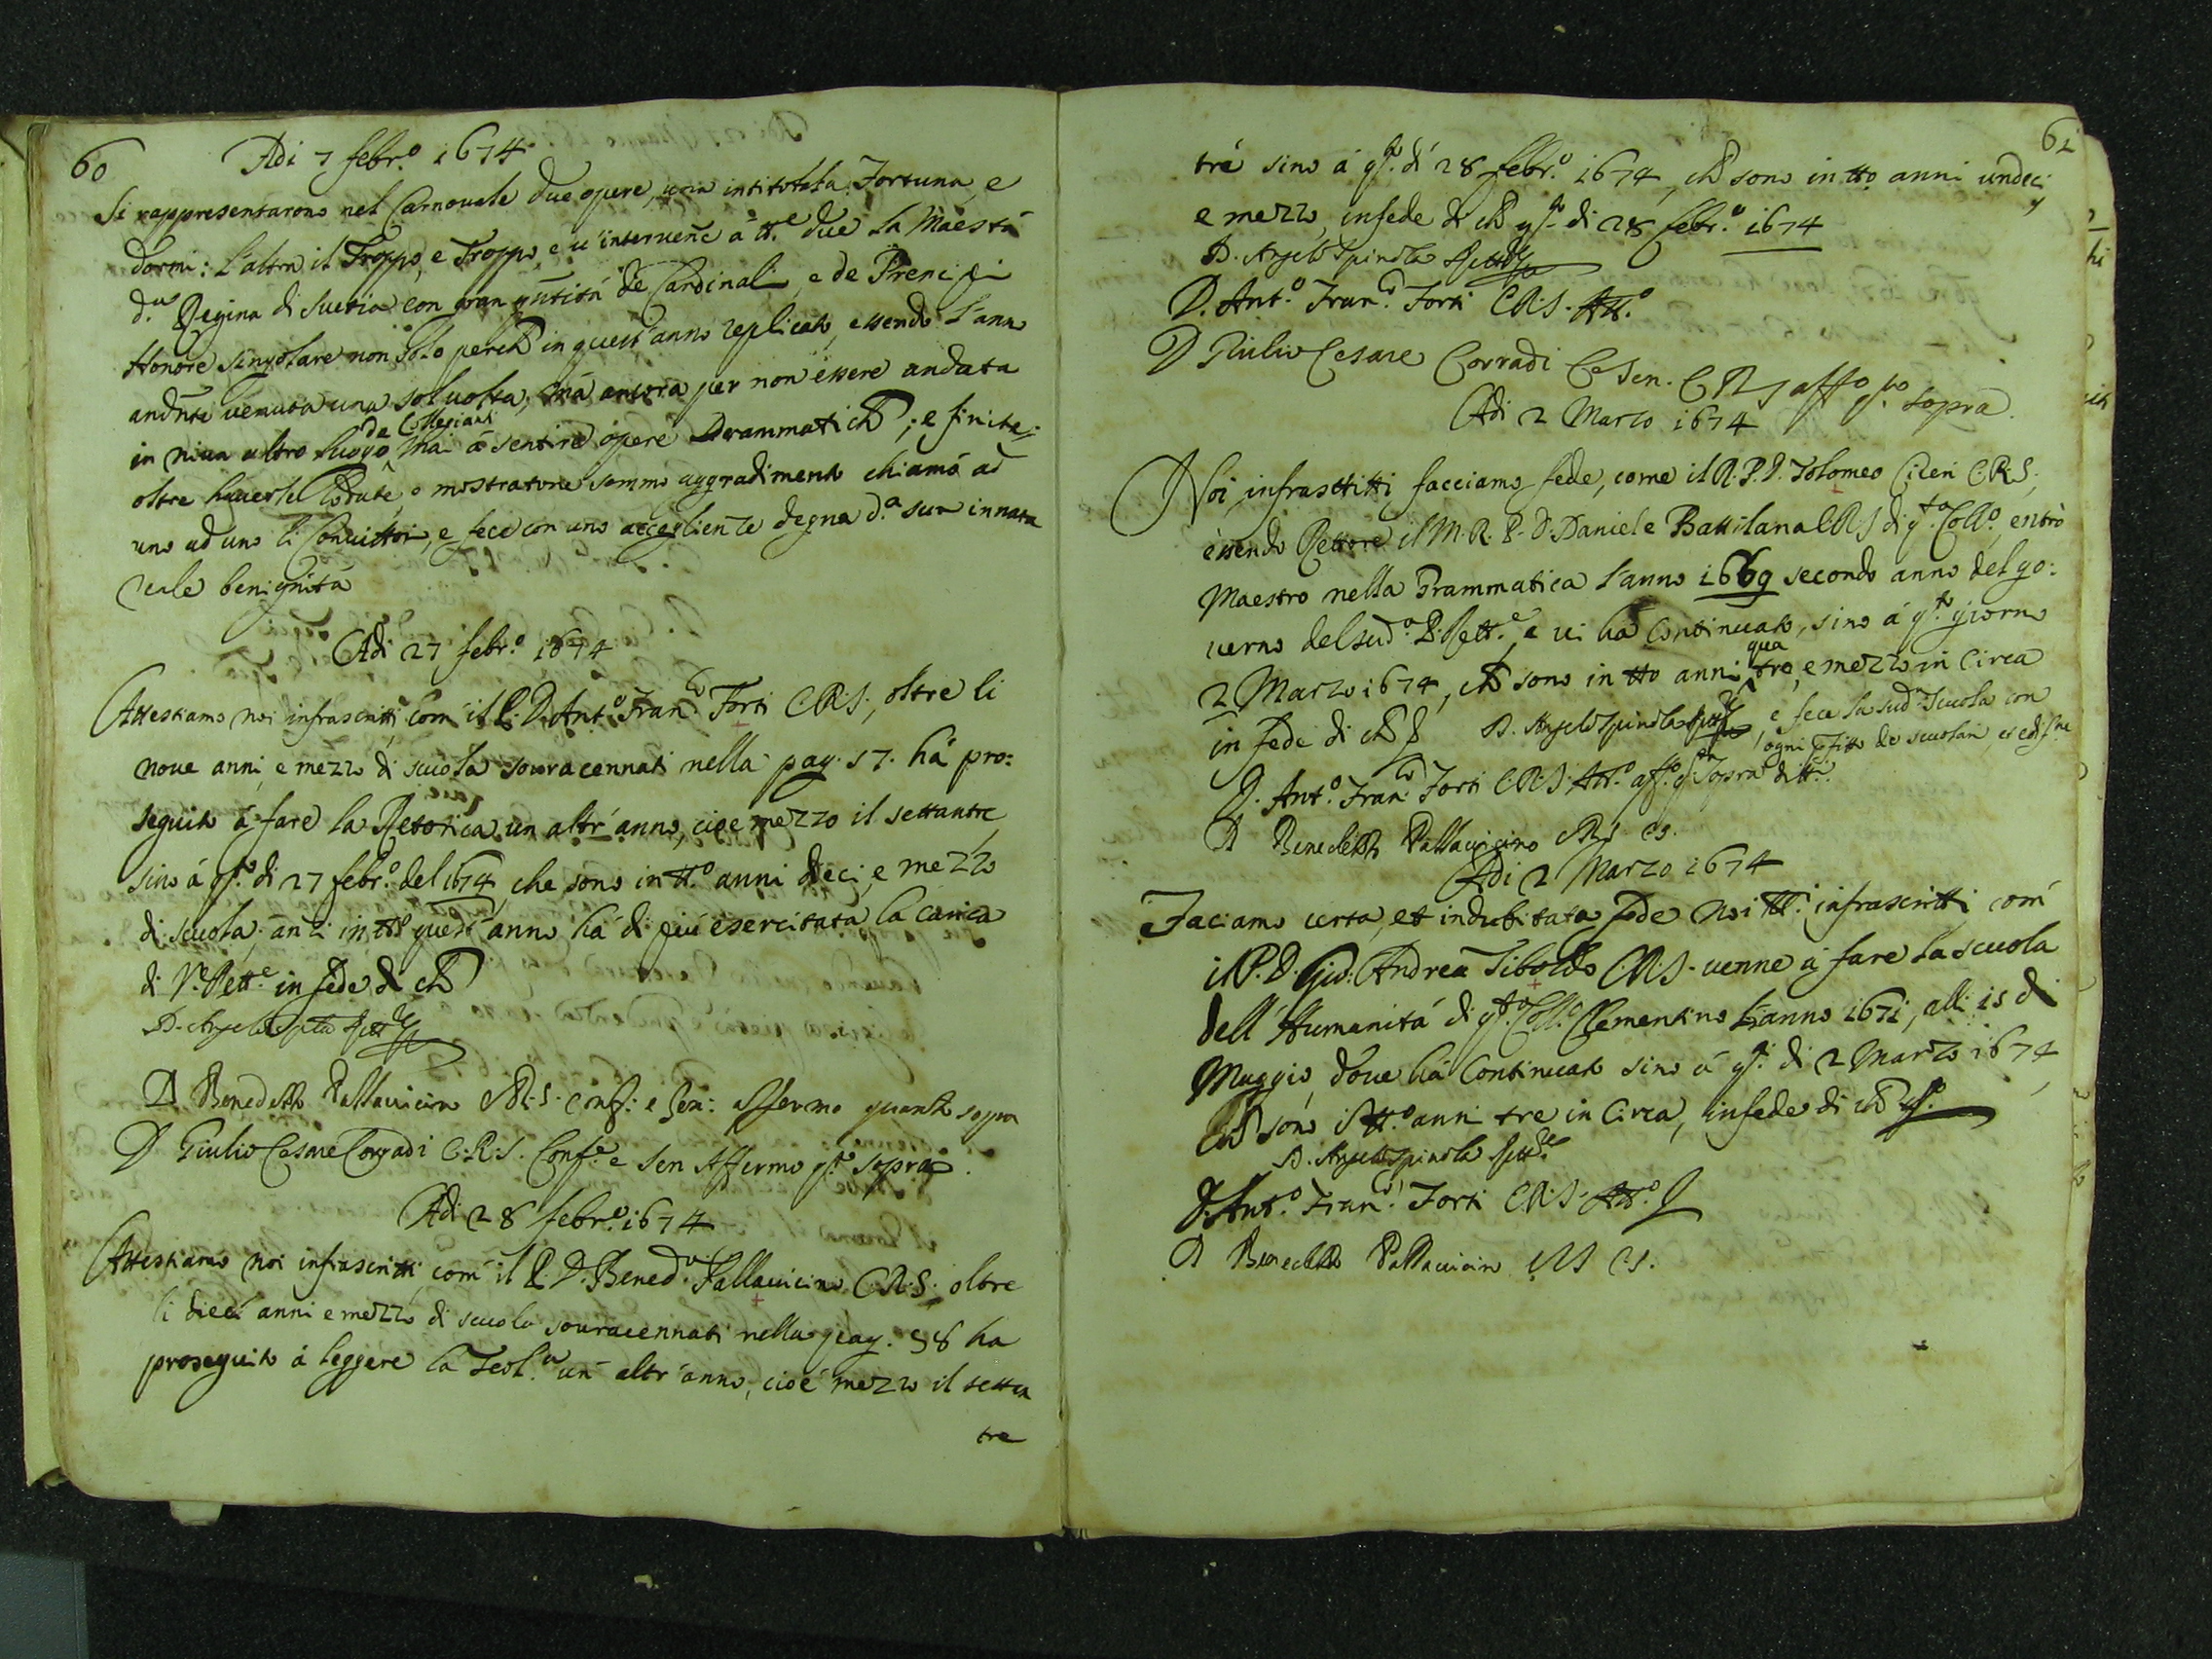 60
Adi 7 febr.o 1674
Si rappresentarono nel Carnouale due opere, una intitolata Fortuna, e
dormi: L'altra il Troppo, e Troppo, e u'interuene à tt.e due la Maestà
d.a Regina di Suetia con gran qūtità de Cardinali, e de Prencipi
Honore singolare non solo perche in quest'anno replicato, essendo l'ann
andūte uenuta una sol uolta, mà ancora per non essere andata
in niun altro luogo da Collegiali mai à sentire opere Drammatich; e finite
oltre hauerle lodate, o mostratone sommo aggradimento chiamò ad
uno ad uno li Conuittori, e fece con uno accoglienze degna d.a sua innata
reale benignità
Adi 27 febr.o 1674
Attestiamo noi infrascritti, com' il P. D. Ant.o Fran.co Forti C.R.S., oltre li
noue anni, e mezzo di scuola souracennati nella pag. 57. hà pro:
seguito à fare la Retorica un altr'anno, cioe mezzo il settantre
sino à q.sto di 27 febr.o del 1674, che sono in tt.o anni dieci, e mezzo
di scuola; anzi in tt.o quest'anno hà di più esercitata la carica
di V.e Rett.e in fede di ch
D. Angelo Spīla Rett.e
D Benedetto Pallauicino C.R.S. Conf. e Sen: affermo quanto sopra
D Giulio Cesare Corradi C.R.S. Conf.e e Sen Affermo q.to sopra.
Adi 28 febr.o 1674
Attestiamo noi infrascritti, com' il P. D. Bened.o Pallauicino C.R.S. oltre
li dieci anni e mezzo di scuola souracennati nella pag. 58 ha
proseguito à leggere la Teol.a un' altr'anno, cioè mezzo il setta
tre
61
trè sino à q.sto dì 28 febr.o 1674, ch sono in tto anni undeci
e mezzo, in fede di ch q.sto di 28 febr.o 1674
D. Angelo Spinola Rett.e
D. Ant.o Fran.co Forti C.R.S. Att.o
D Giulio Cesare Corradi Ce Sen. C R S aff.o q.to sopra.
Adi 2 Marzo 1674
Noi infrascritti facciamo fede, come il R. P. D. Tolomeo Cileri C.R.S.,
essendo Rettore il M. R. P. D. Daniele Battilana C.R.S di q.sto Coll.o, entrò
Maestro nella Grammatica l'anno 1669 secondo anno del go:
uerno del sud.o P. Rett.e, e ui ha continuato, sino à q.sto giorno
2 Marzo 1674, ch sono in tto anni quatro, e mezzo in circa
in fede di ch D. Angelo Spinola Rett.e, e fece la sud.a Scuola con
ogni pfitto de scuolari, et edif.ne
D. Ant.o Fran.co Forti C.R.S. Att.o aff.o q.to sopra
D Benedetto Pallauicino C.R.S. CS.
Adi 2 Marzo 1674
Faciamo certa, et indubitata fede Noi tt.i infrascritti com'
il P. D. Gio: Andrea Tiboldo C.R.S. uenne à fare la scuola
dell'Humanità di q.sto Coll.o Clementino l'anno 1671, alli 15 di
Maggio, doue hà continuato sino à q.sto di 2 Marzo 1674
ch sono i tt.o anni tre in circa, in fede di ch
D. Angelo Spinola Rett.e
D. Ant.o Fran.co Forti C.R.S. Att.o
D Benedetto Pallauicino C.R.S C.S.